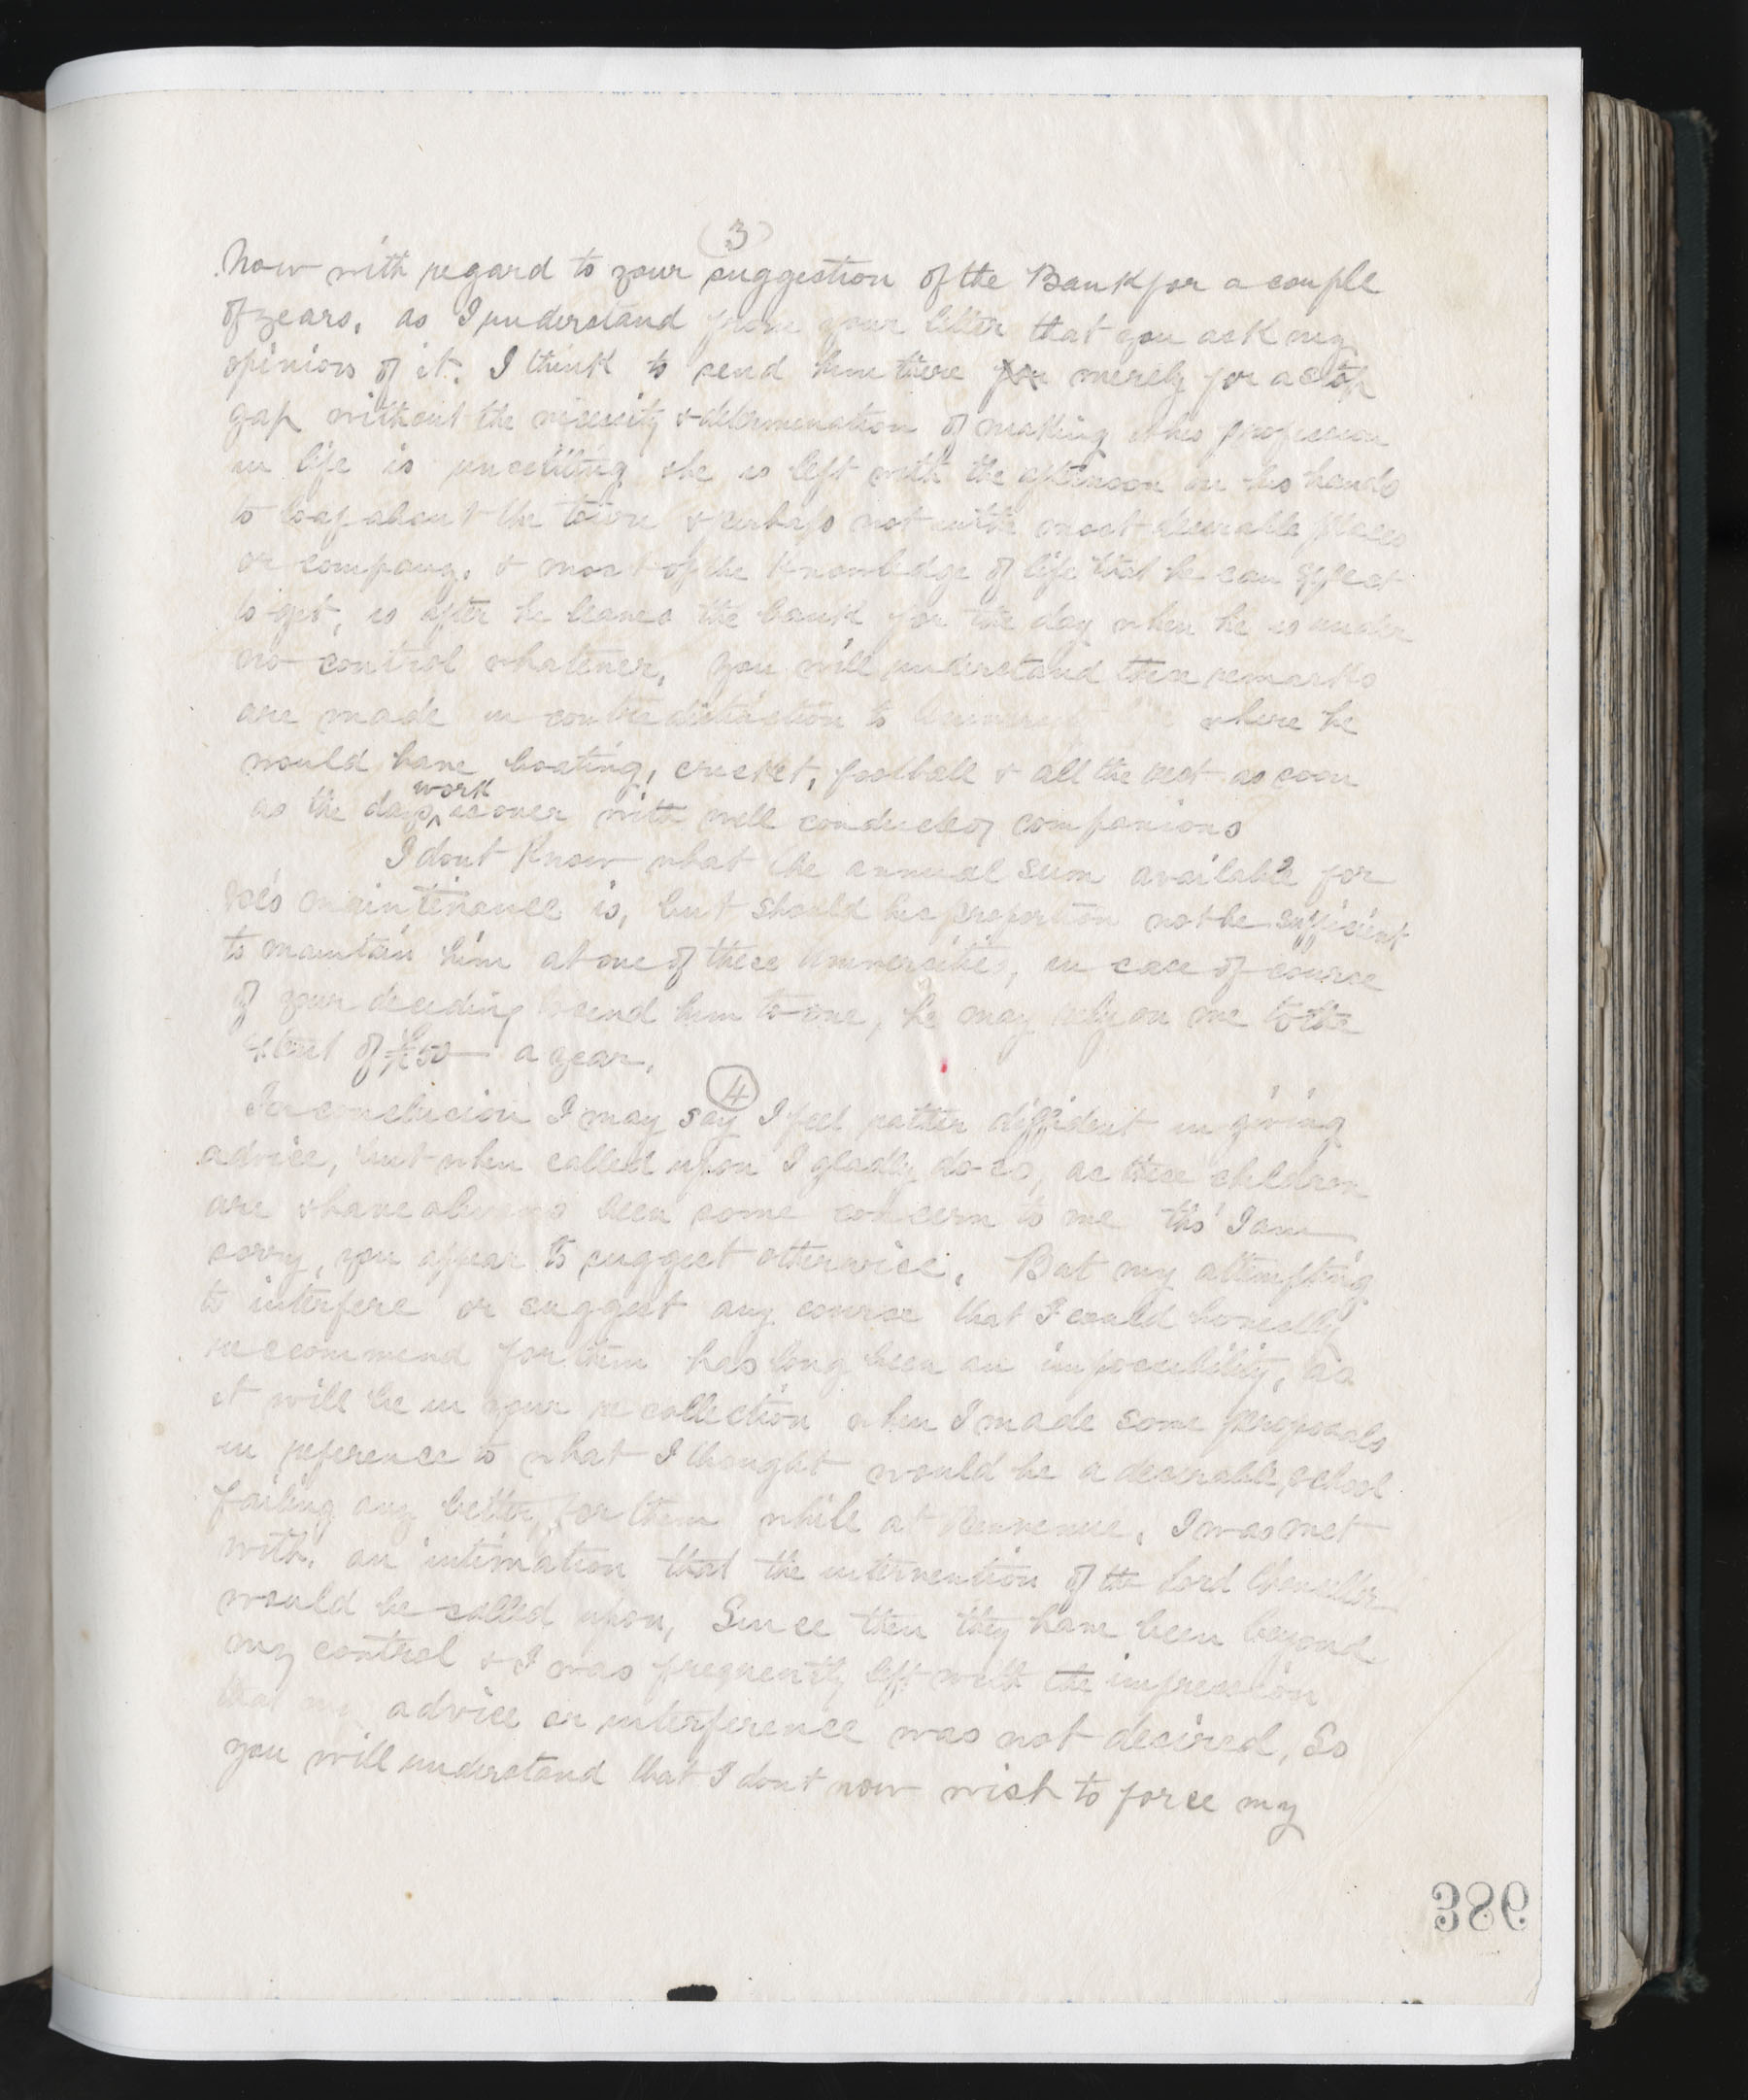 (3)
Now with regard to your suggestion of the Bank for a couple
of years, as I understand from your letter that you ask my
opinion of it. I think to send him there for merely for a stop
gap without the necessity & determination of making it his profession
in life is unsettling & he is left with the afternoon on his hands
to loaf about the town & perhaps not in the most desirable places
or company, & most of the knowledge of life that he can expect
to get, is after he leaves the bank for the day when he is under
no control whatever, you will understand these remarks
are made in contradistinction to where he
would have boating, cricket, football & all the rest as soon
as the days work is over with well conducted companions
I dont know what the annual sum available for
Joe's maintenance is, but should his proportion not be sufficient
to maintain him at one of these Universities, in case of course
of your deciding to send him to one, he may rely on me to the
extent of £50 a year.
(4)
In conclusion I may say I feel rather diffident in giving
advice, but when called upon I gladly do so, as these children
are & have always been some concern to me tho' I am
sorry, you appear to suggest otherwise. But my attempting
to interfere or suggest any course that I could honestly
recommend for them has long been an impossibility, as
it will be in your recollection when I made some proposals
in reference to what I thought would be a desirable school
failing any better, for them while at I was met
with, an intimation that the intervention of the Lord Chancellor
would be called upon, Since then they have been beyond
my control & I was frequently left with the impression
that my advice or interference was not desired, So
you will understand that I dont now wish to force my
386